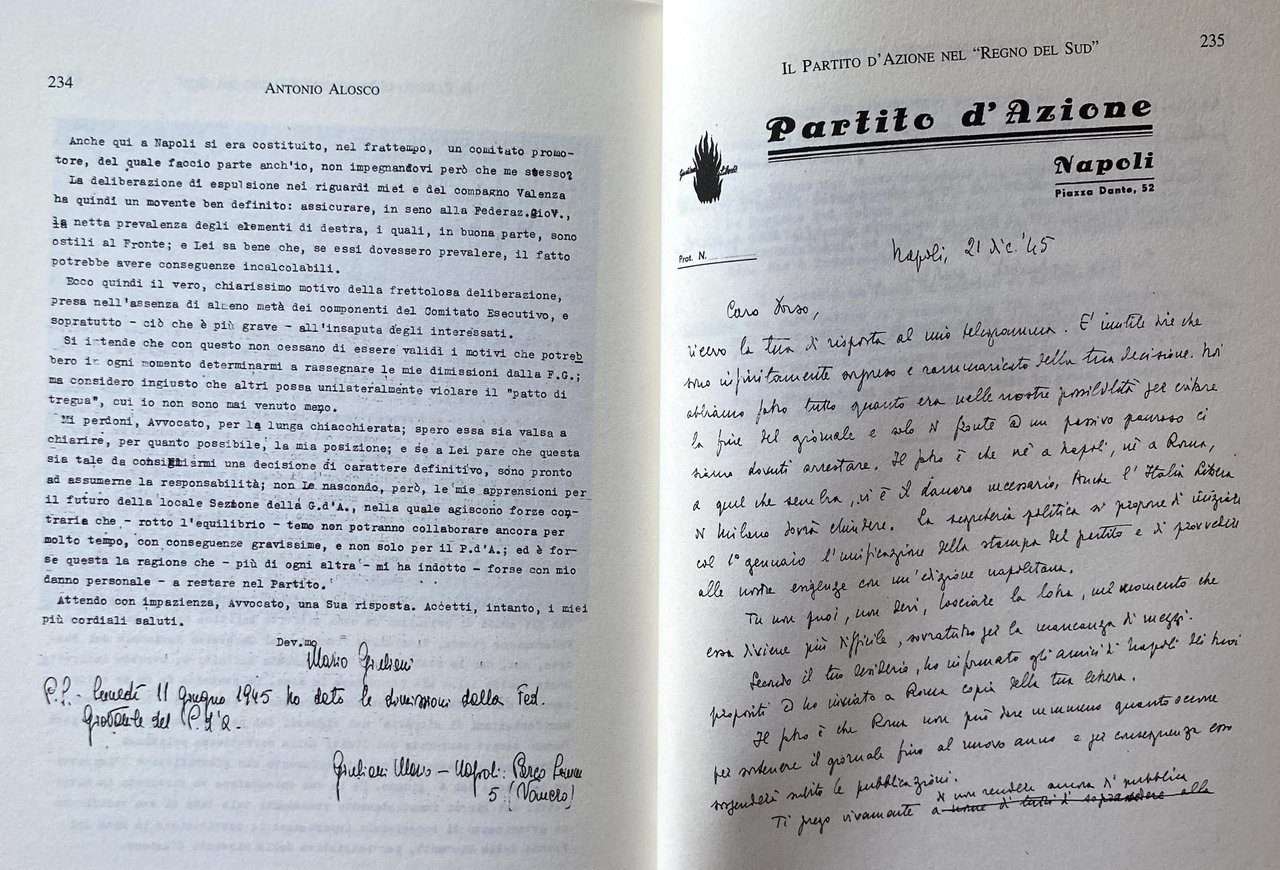 234
ANTONIO ALOSCO
Anche qui a Napoli si era costituito, nel frattempo, un comitato promo-
tore, del quale faccio parte anch'io, non impegnandovi però che me stesso?
La deliberazione di espulsione nei riguardi miei e del compagno Valenza
ha quindi un movente ben definito: assicurare, in seno alla Federaz.Giov.,
la netta prevalenza degli elementi di destra, i quali, in buona parte, sono
ostili al Fronte; e Lei sa bene che, se essi dovessero prevalere, il fatto
potrebbe avere conseguenze incalcolabili.
Ecco quindi il vero, chiarissimo motivo della frettolosa deliberazione,
presa nell'assenza di almeno metà dei componenti del Comitato Esecutivo, e
sopratutto - ciò che è più grave - all'insaputa degli interessati.
Si intende che con questo non cessano di essere validi i motivi che potreb
bero in ogni momento determinarmi a rassegnare le mie dimissioni dalla F.G.;
ma considero ingiusto che altri possa unilateralmente violare il "patto di
tregua", cui io non sono mai venuto meno.
Mi perdoni, Avvocato, per la lunga chiacchierata; spero essa sia valsa a
chiarire, per quanto possibile, la mia posizione; e se a Lei pare che questa
sia tale da consigliarmi una decisione di carattere definitivo, sono pronto
ad assumerne la responsabilità; non Le nascondo, però, le mie apprensioni per
il futuro della locale Sezione della G.d'A., nella quale agiscono forze con-
trarie che - rotto l'equilibrio - temo non potranno collaborare ancora per
molto tempo, con conseguenze gravissime, e non solo per il P.d'A.; ed è for-
se questa la ragione che - più di ogni altra - mi ha indotto - forse con mio
danno personale - a restare nel Partito.
Attendo con impazienza, Avvocato, una Sua risposta. Accetti, intanto, i miei
più cordiali saluti.
Dev.mo
Mario Giuliani
P.S. Lunedì 11 giugno 1945 ho dato le dimissioni dalla Fed.
Giovanile del P.d'A.
Giuliani Mario - Napoli: Parco
5 (Vomero)
IL PARTITO D'AZIONE NEL "REGNO DEL SUD"
235
Partito d'Azione
Napoli
Piazza Dante, 52
Prot. N.
Napoli, 21 dic. '45
Caro Dorso,
ricevo la tua di risposta al mio telegramma. E' inutile dire che
sono infinitamente sorpreso e rammaricato della tua decisione. Noi
abbiamo fatto tutto quanto era nelle nostre possibilità per evitare
la fine del giornale e solo di fronte ad un passivo pauroso ci
siamo dovuti arrestare. Il fatto è che nè a Napoli, nè a Roma,
a quel che sembra, vi è il danaro necessario. Anche l'Italia Libera
di Milano dovrà chiudere. La segreteria politica si propone di iniziare
col 1° gennaio l'unificazione della stampa del partito e di provvedere
alle nostre esigenze con un'edizione napoletana.
Tu non puoi, non devi, lasciare la lotta, nel momento che
essa diviene più difficile, sovratutto per la mancanza di mezzi.
Secondo il tuo desiderio, ho informato gli amici di Napoli dei tuoi
propositi ed ho inviato a Roma copia della tua lettera.
Il fatto è che Roma non può dare nemmeno quanto occorre
per sostenere il giornale fino al nuovo anno e per conseguenza esso
sospenderà subito le pubblicazioni.
di non rendere ancora di pubblica
Ti prego vivamente a di soprassedere alla